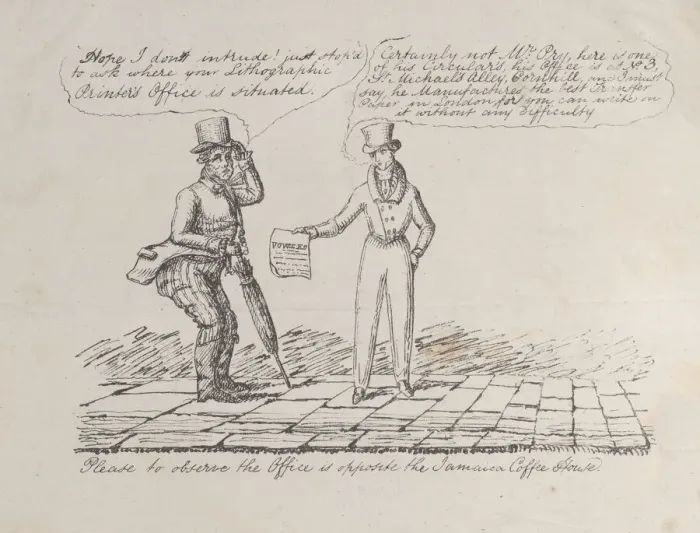 Hope I don't intrude! just stop'd
to ask where your Lithographic
Printer's Office is situated.
Certainly not Mr. Pry, here is one
of his Circulars, his Office is at No. 3,
St. Michael's Alley, Cornhill, and I must
say, he Manufactures the best Transfer
Paper in London for you can write on
it without any difficulty
Please to observe the Office is opposite the Jamaica Coffee House.